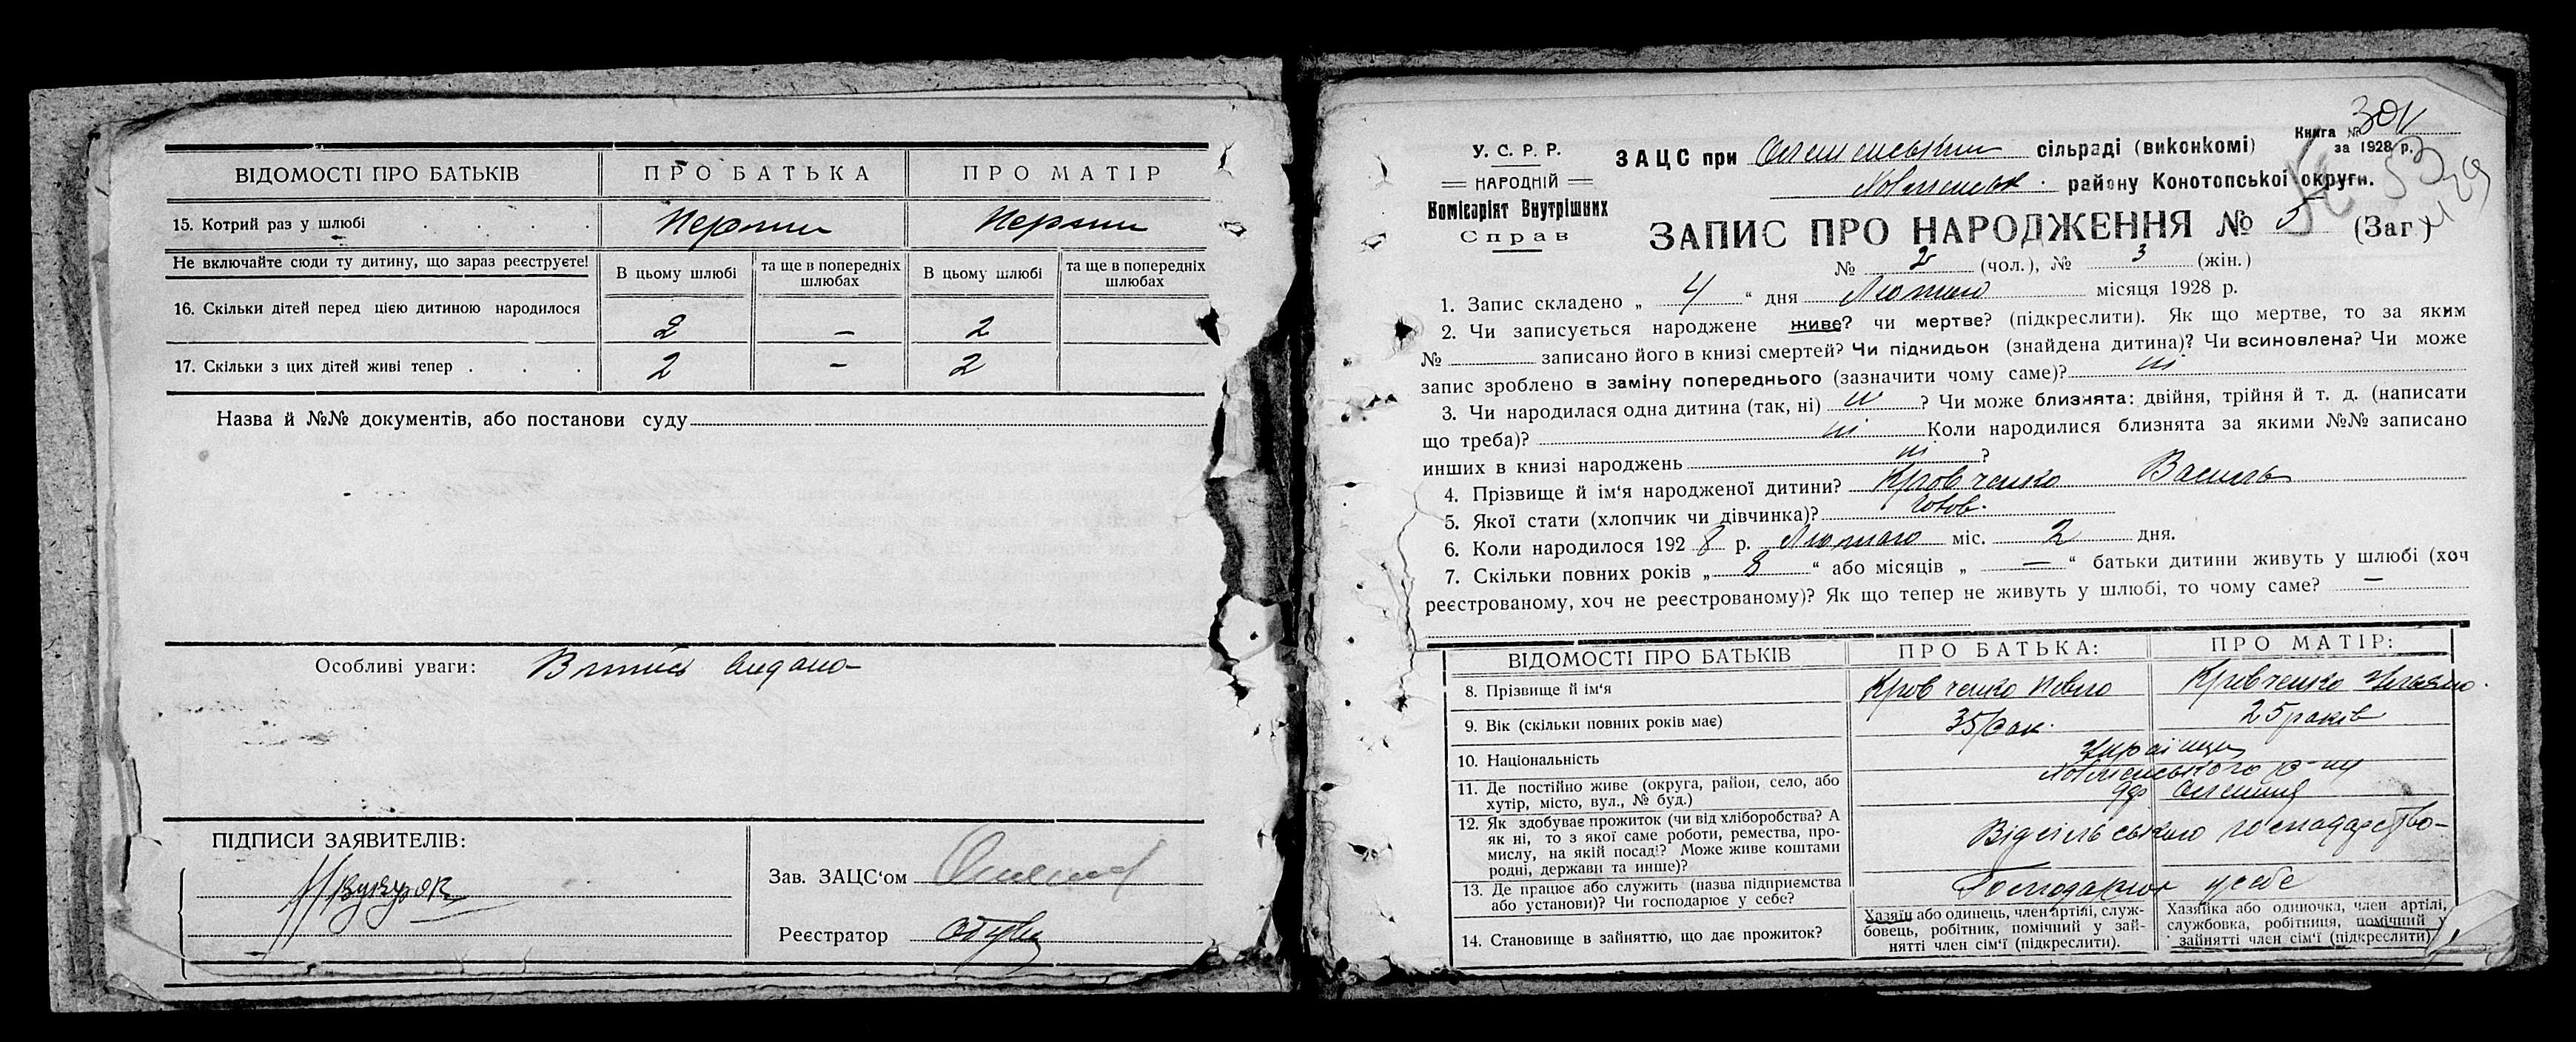 ВІДОМОСТІ ПРО БАТЬКІВ ПРО БАТЬКА ПРО МАТІР
15. Котрий раз у шлюбі . . . . Перший Перший
Не включайте сюди ту дитину, що зараз реєструєте! В цьому шлюбі та ще в попередніх шлюбах В цьому шлюбі та ще в попередніх шлюбах
16. Скільки дітей перед цією дитиною народилося 2 – 2
17. Скільки з цих дітей живі тепер . . . 2 – 2
Назва й №№ документів, або постанови суду
Особливі уваги:
ПІДПИСИ ЗАЯВИТЕЛІВ:
Зав. ЗАЦС‘ом
Реєстратор
У. С. Р. Р.
НАРОДНІЙ
Комісаріят Внутрішних
Справ
Книга №
за 1928 р.
ЗАЦС при сільраді (виконкомі)
району Конотопської округи.
ЗАПИС ПРО НАРОДЖЕННЯ № 5 (Заг.)
№ 2 (чол.), № 3 (жін.)
1. Запис складено „ 4 “ дня Лютого місяця 1928 р.
2. Чи записується народжене живе? чи мертве? (підкреслити). Як що мертве, то за яким
№ записано його в книзі смертей? Чи підкидьок (знайдена дитина)? Чи всиновлена? Чи може
запис зроблено в заміну попереднього (зазначити чому саме)? ні
3. Чи народилася одна дитина (так, ні) ? Чи може близнята: двійня, трійня й т. д. (написати
що треба)? ні Коли народилися близнята за якими №№ записано
инших в книзі народжень ні ?
4. Прізвище й ім‘я народженої дитини? Кровченко Василь
5. Якої стати (хлопчик чи дівчинка)?
6. Коли народилося 192 8 р. Лютого міс. 2 дня.
7. Скільки повних років „ 8 “ або місяців „ — “ батьки дитини живуть у шлюбі (хоч
реєстрованому, хоч не реєстрованому)? Як що тепер не живуть у шлюбі, то чому саме? —
ВІДОМОСТІ ПРО БАТЬКІВ ПРО БАТЬКА: ПРО МАТІР:
8. Прізвище й ім‘я Кровченко Павло Кровченко
9. Вік (скільки повних років має) 35 рок. 25 років
10. Національність Українці
11. Де постійно живе (округа, район, село, або
хутір, місто, вул., № буд.)
12. Як здобуває прожиток (чи від хліборобства? А
як ні, то з якої саме роботи, ремества, про-
мислу, на якій посаді? Може живе коштами
родні, держави та инше)? Від сільського господарства
13. Де працює або служить (назва підприємства
або установи)? Чи господарює у себе? Господарює у себе
14. Становище в зайняттю, що дає прожиток?
Хазяїн або одинець, член артілі, служ-
бовець, робітник, помічний у зай-
нятті член сім‘ї (підкреслити).
Хазяйка або одиночка, член артілі,
службовка, робітниця, помічний у
зайнятті член сім‘ї (підкреслити)